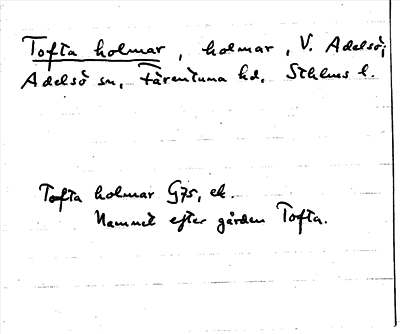 Tofta holmar, holmar, V. Adelsö,
Adelsö sn, Färentuna hd, Sthlms l.
Tofta holmar G75, ek.
Namnet efter gården Tofta.